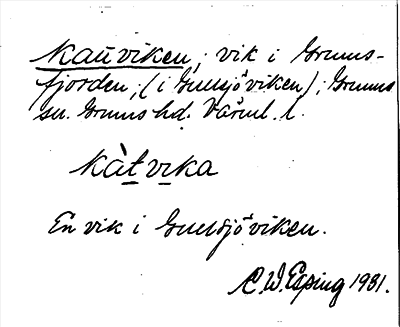 Kattviken; vik i Grums-
fjorden; (i Gullsjöviken); Grums
sn. Grums hd. Värml. l.
kàtvika
En vik i Gullsjöviken.
C. W. Esping 1931.